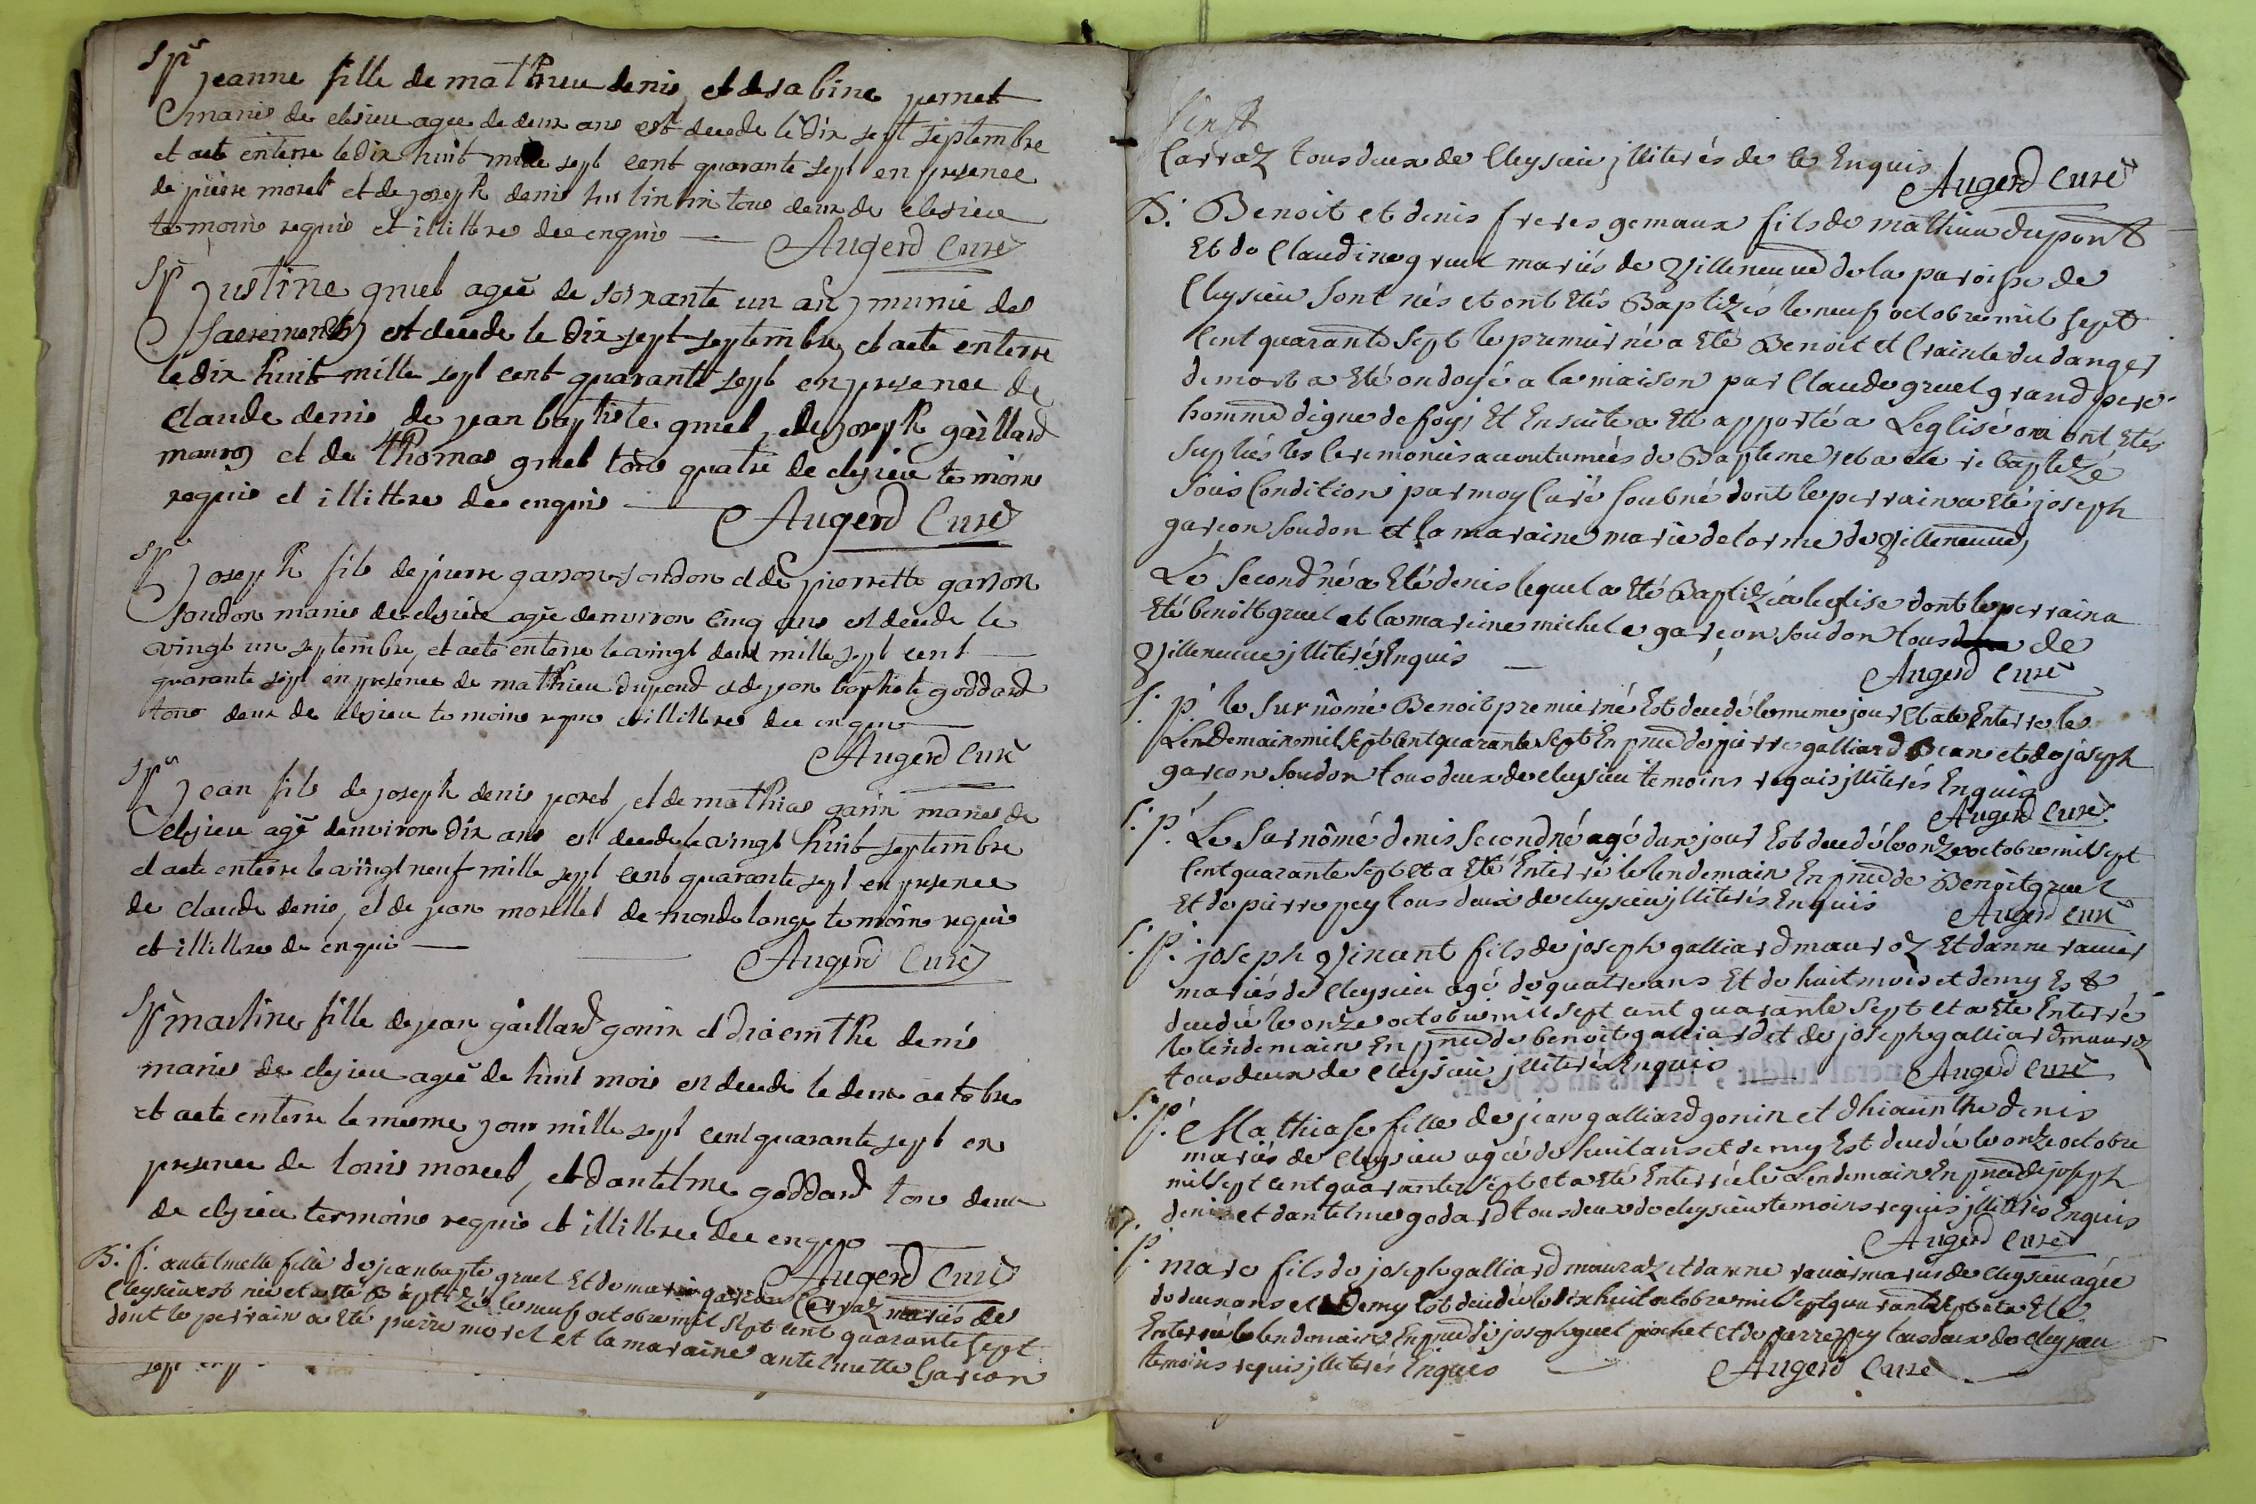 Spr
jeanne fille de mathieu denis et de sabine pernet
mariés de clesieu agee de deux ans est decede le dix sept septembre
et aete enterre le dix huit mille sept cent quarante sept en presence
de pierre morel et de joseph denis tous deux de clesieu
temoins requis et illittres dee enquis — Augerd Curé
Spr
justine gruel ageé de soixante un an munie des
sacrements est decede le dix sept septembre, et aete enterre
le dix huit mille sept cent quarante sept en presence de
claude denis, de jean baptiste gruel, de joseph gaillard
mauroz et de thomas gruel tous quatre de clesieu temoins
requis et illittres dee enquis — Augerd Curé
Spr
joseph fils de pierre garson soudon et de pierrette garson
soudon mariés de clesieu agee denviron cinq ans est decede le
vingt un septembre, et aete enterre le vingt deux mille sept cent —
quarante sept en presence de mathieu dupond et de jean baptiste goddard
tous deux de clesieu temoins requis et illittres dee enquis —
Augerd Curé
Spr
jean fils de joseph denis poret, et de mathias garin mariés de
clesieu agé denviron dix ans est decede le vingt huit septembre
et aete enterre le vingt neuf mille sept cent quarante sept en presence
de claude denis, et de jean morellet de mondelange temoins requis
et illittres de enquis — Augerd Curé
Spr
martine fille de jean gaillard gonin et diacinthe denis
mariés de clesieu ageé de huit mois est decede le deux octobre
et aete enterre le mesme jour mille sept cent quarante sept en
presence de louis morel, et dantelme goddard tous deux
de clesieu termoins requis et illittres dee enquis
Augerd Curé
B. f. antelmette fille de jean bapte gruel Et de marie garson Carraz mariés de
Cleysieu est née et a été Baptizée le neuf octobre mil sept cent quarante sept
dont le perrain a Eté pierre morel et la maraine antelmette Garcon
Carraz tous deux de Cleysieu illiterés de ce Enquis
Augerd Curé
B. Benoit et denis freres gemaux fils de mathieu dupont
Et de Claudine gruel mariés de Villeneuve de la paroisse de
Cleysieu sont nés et ont Etés Baptizés le neuf octobre mil sept
Cent quarante Sept le premier né a Eté Benoit et Crainte du danger
de mort a Eté ondoyé a la maison par Claude gruel grand pere
homme digne de foy, Et Ensuite a Eté apporté a Leglise ou ont Etés
suppléés les Ceremonies acoutumées de Bapteme et a ete rebaptizé
Sous Condition par moy Curé soubné dont le perrain a Eté joseph
garcon soudon et la maraine marie delorme de Villeneuve,
Le Second né a Eté denis lequel a Eté Baptizé a leglise dont le perrain a
Eté benoit gruel et la maraine michele garçon soudon tous de
Villeneuve illiterés Enquis —
Augerd Curé
S. p. le surnômé Benoit premier né Est decedé le meme jour Et a ete Enterré le
Lendemain mil sept Cent quarante sept En pnce de pierre galliard Bean et de joseph
garcon soudon tous deux de cleysieu temoins requis illiterés Enquis
Augerd Curé.
S. p. Le Surnômé denis Second né agé dun jour Est decedé le onze octobre mil sept
Cent quarante Sept et a Eté Enterré le lendemain En pnce de Benoit gruel
Et de pierre pey tous deux de cleysieu illiterés Enquis Augerd Curé
S. p. joseph Vincent fils de joseph galliard mauroz Et danne ravier
mariés de Cleysieu agé de quatre ans Et de huit mois et demy Est
decedé le onze octobre mil sept cent quarante Sept et a Eté Enterré
le lendemain En pnce de benoit galliard et de joseph galliard mauroz
tous deux de Cleysieu illiterés Enquis — Augerd Curé
S. p. Mathiase fille de jean galliard gonin et dhiacinthe denis
mariés de Cleysieu agée de huit ans et demy Est decedée le onze octobre
mil sept cent quarante sept et a Eté Enterrée le Lendemain En pnce de joseph
denis et dantelme godard tous deux de cleysieu temoins requis illiterés Enquis
Augerd Curé
S. p. marc fils de joseph galliard mauraz et danne ravier mariés de cleysieu agée
de deux ans et Demy Est decedé le dix huit octobre mil sept quarante Sept et a Eté
Enterré le lendemain En pnce de joseph gruel pochet et de pierre pey tous deux de cleysieu
temoins requis illiterés Enquis — Augerd Curé